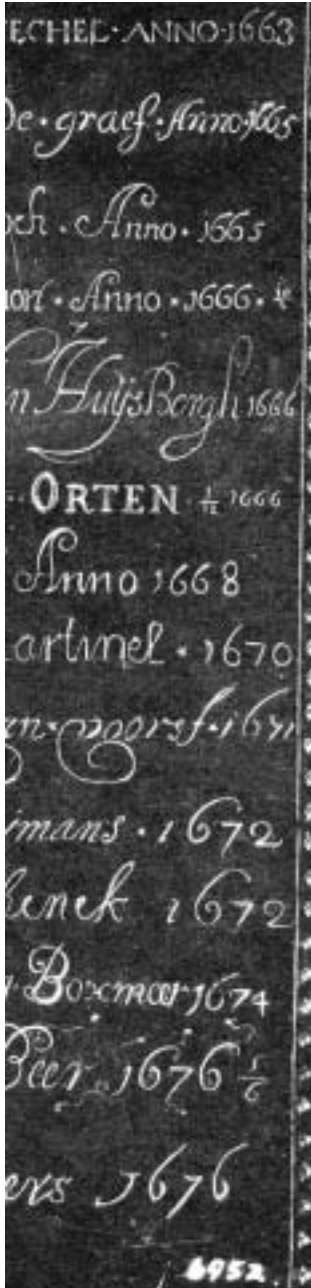 ECHEL·ANNO·1663
De·graef·Anno 1665
och·Anno·1665
Anno·1666·
n HuijsBorgh 1666
ORTEN 1/12 1666
Anno 1668
artinel·1670
an·noorst·1671
imans·1672
1672
Boxmaer 1674
Beer 1676 5/6
ers 1676
6952